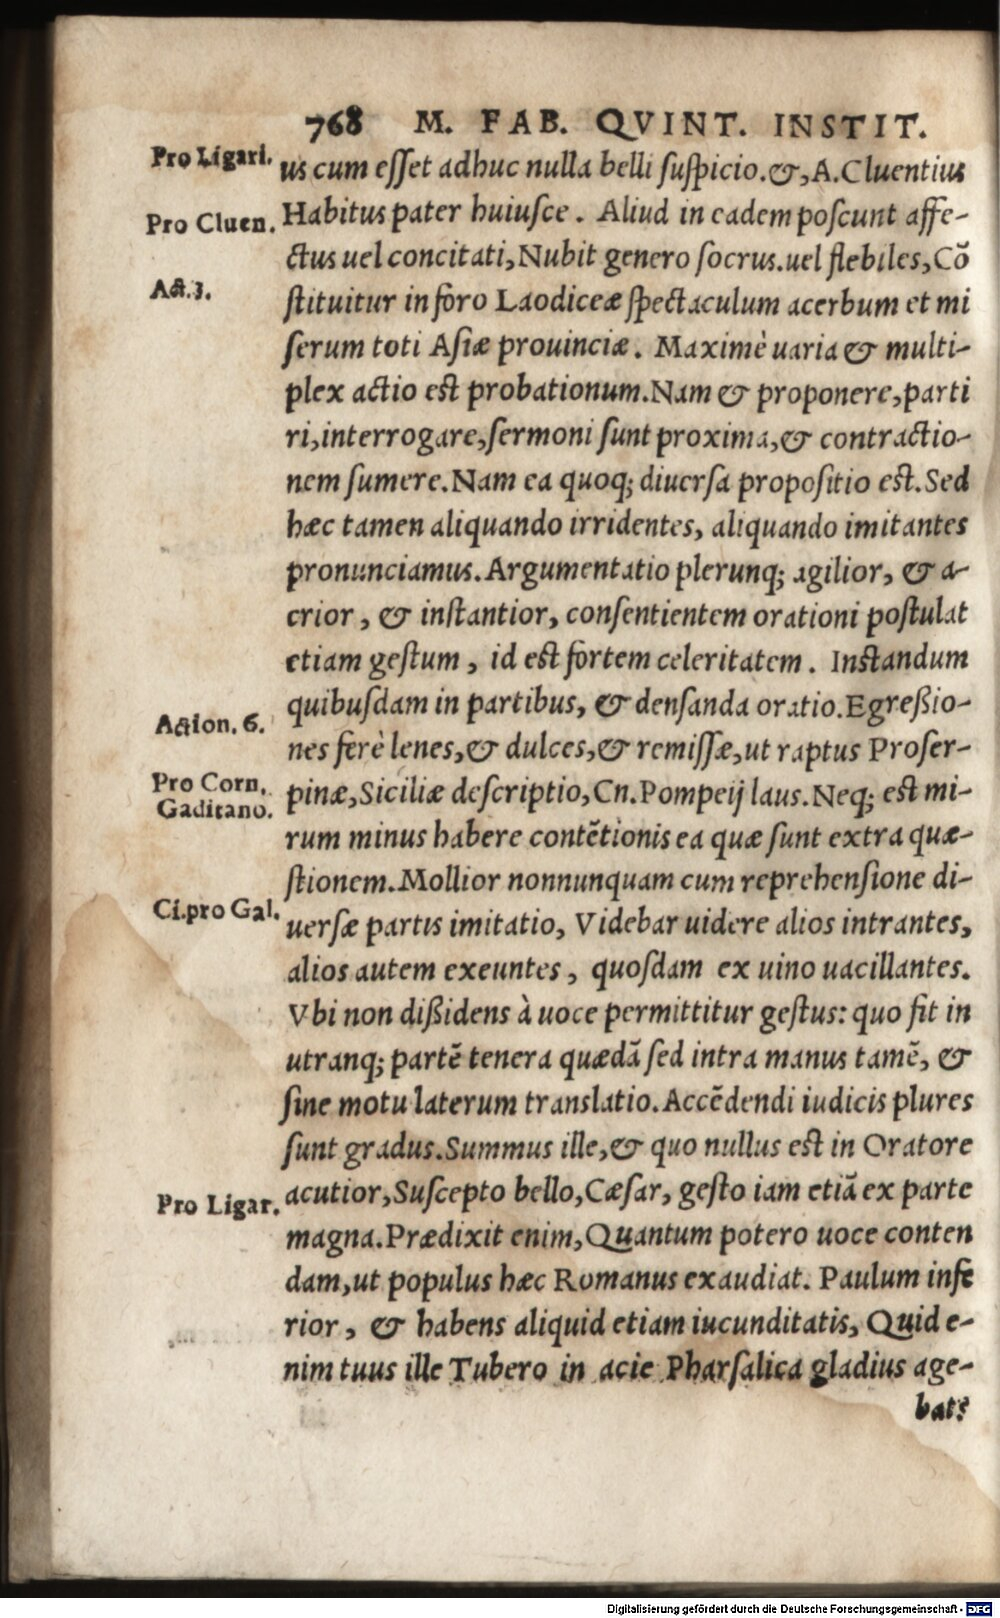 768 M. FAB. QVINT. INSTIT.
Pro Ligari.
us cum eſſet adhuc nulla belli ſuſpicio. &, A. Cluentius
Pro Cluen.
Habitus pater huiuſce. Aliud in eadem poſcunt affe-
ctus uel concitati, Nubit genero ſocrus. uel flebiles, Cõ
Act. 3.
ſtituitur in foro Laodiceæ ſpectaculum acerbum et mi
ſerum toti Aſiæ prouinciæ. Maximè uaria & multi-
plex actio eſt probationum. Nam & proponere, parti
ri, interrogare, ſermoni ſunt proxima, & contractio-
nem ſumere. Nam ea quoq; diuerſa propoſitio eſt. Sed
hæc tamen aliquando irridentes, aliquando imitantes
pronunciamus. Argumentatio plerunq; agilior, & a-
crior, & inſtantior, conſentientem orationi poſtulat
etiam geſtum, id eſt fortem celeritatem. Inſtandum
quibuſdam in partibus, & denſanda oratio. Egreßio-
Action. 6.
nes ferè lenes, & dulces, & remiſſæ, ut raptus Proſer-
Pro Corn.
Gaditano.
pinæ, Siciliæ deſcriptio, Cn. Pompeij laus. Neq; eſt mi-
rum minus habere contẽtionis ea quæ ſunt extra quæ-
ſtionem. Mollior nonnunquam cum reprehenſione di-
Ci. pro Gal.
uerſæ partis imitatio, Videbar uidere alios intrantes,
alios autem exeuntes, quoſdam ex uino uacillantes.
Vbi non dißidens à uoce permittitur geſtus: quo fit in
utranq; partẽ tenera quædã ſed intra manus tamẽ, &
ſine motu laterum translatio. Accẽdendi iudicis plures
ſunt gradus. Summus ille, & quo nullus eſt in Oratore
Pro Ligar.
acutior, Suſcepto bello, Cæſar, geſto iam etiã ex parte
magna. Prædixit enim, Quantum potero uoce conten
dam, ut populus hæc Romanus exaudiat. Paulum infe
rior, & habens aliquid etiam iucunditatis, Quid e-
nim tuus ille Tubero in acie Pharſalica gladius age-
bat?
Digitalisierung gefördert durch die Deutsche Forschungsgemeinschaft - DFG